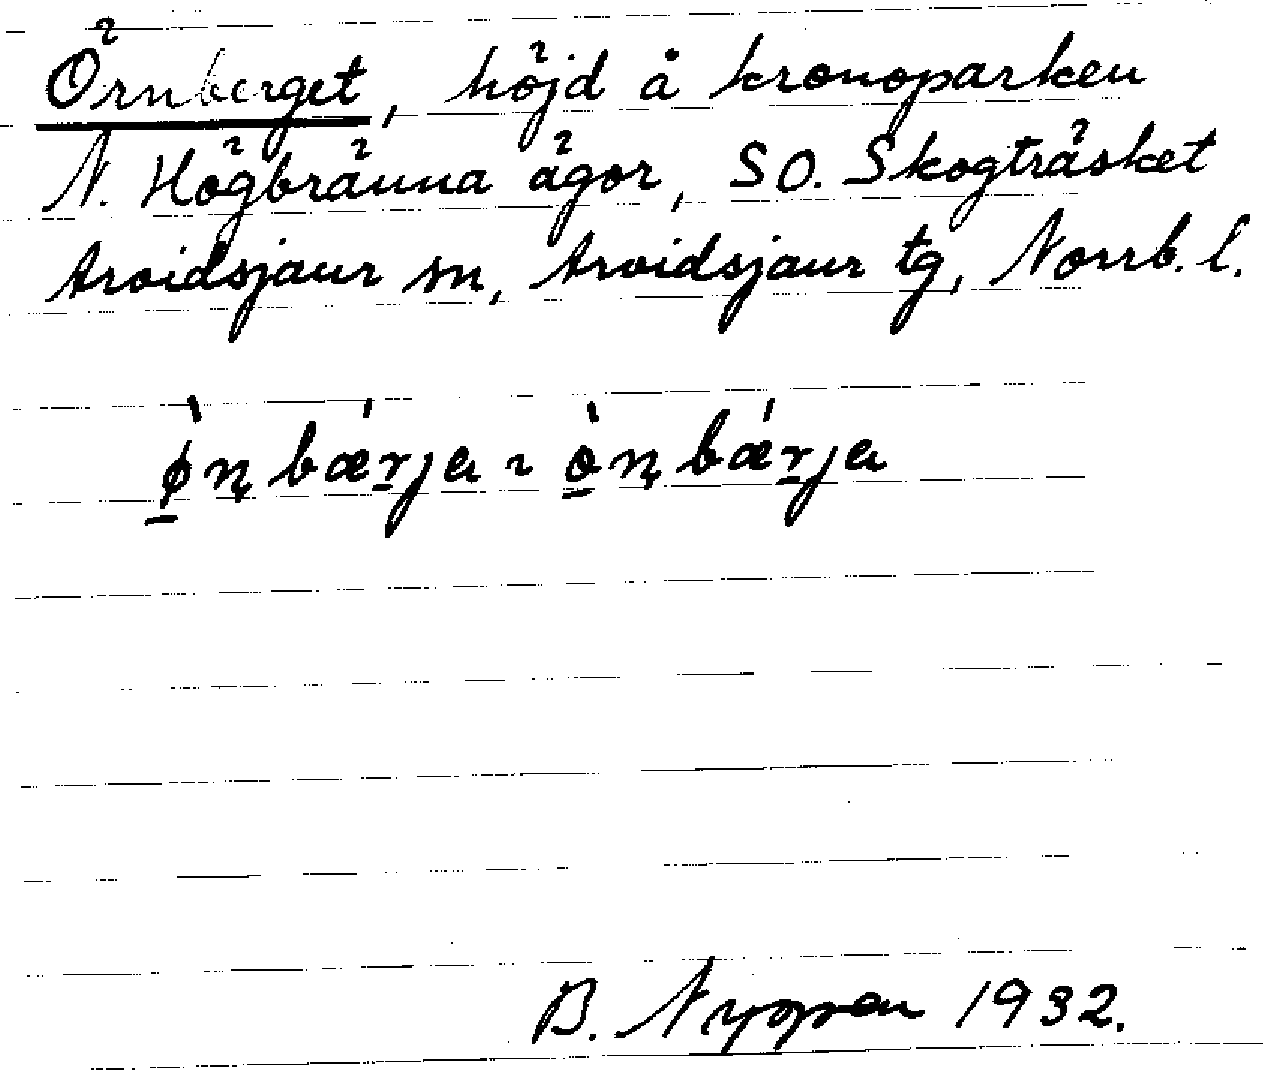 Örnberget, höjd å kronoparken
N. Högbränna ägor, SO. Skogträsket
Arvidsjaur sn, Arvidsjaur tg, Norrb. l.
ø̱̀ɳbǽṟja ~ ò̱ɳbǽṟja
B. 1932.